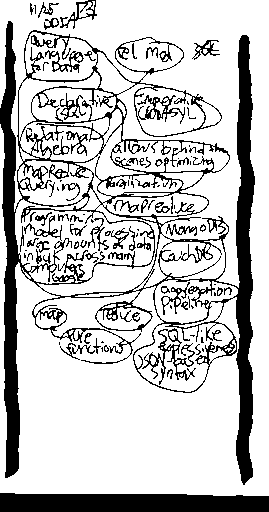 11/25
DDIA
Query
Language
for Data
rel mod
Declarative
(SQL)
Imperative
CODASYL
Relational
Algebra
allows behind the
scenes optimizing
MapReduce
Querying
MapReduce
Programming
model for processing
large amounts of data
in bulk across many
computers
Google
MongoDB
CouchDB
aggregation
Pipeline
map
reduce
pure
functions
SQL-like
expressiveness
JSON-based
syntax